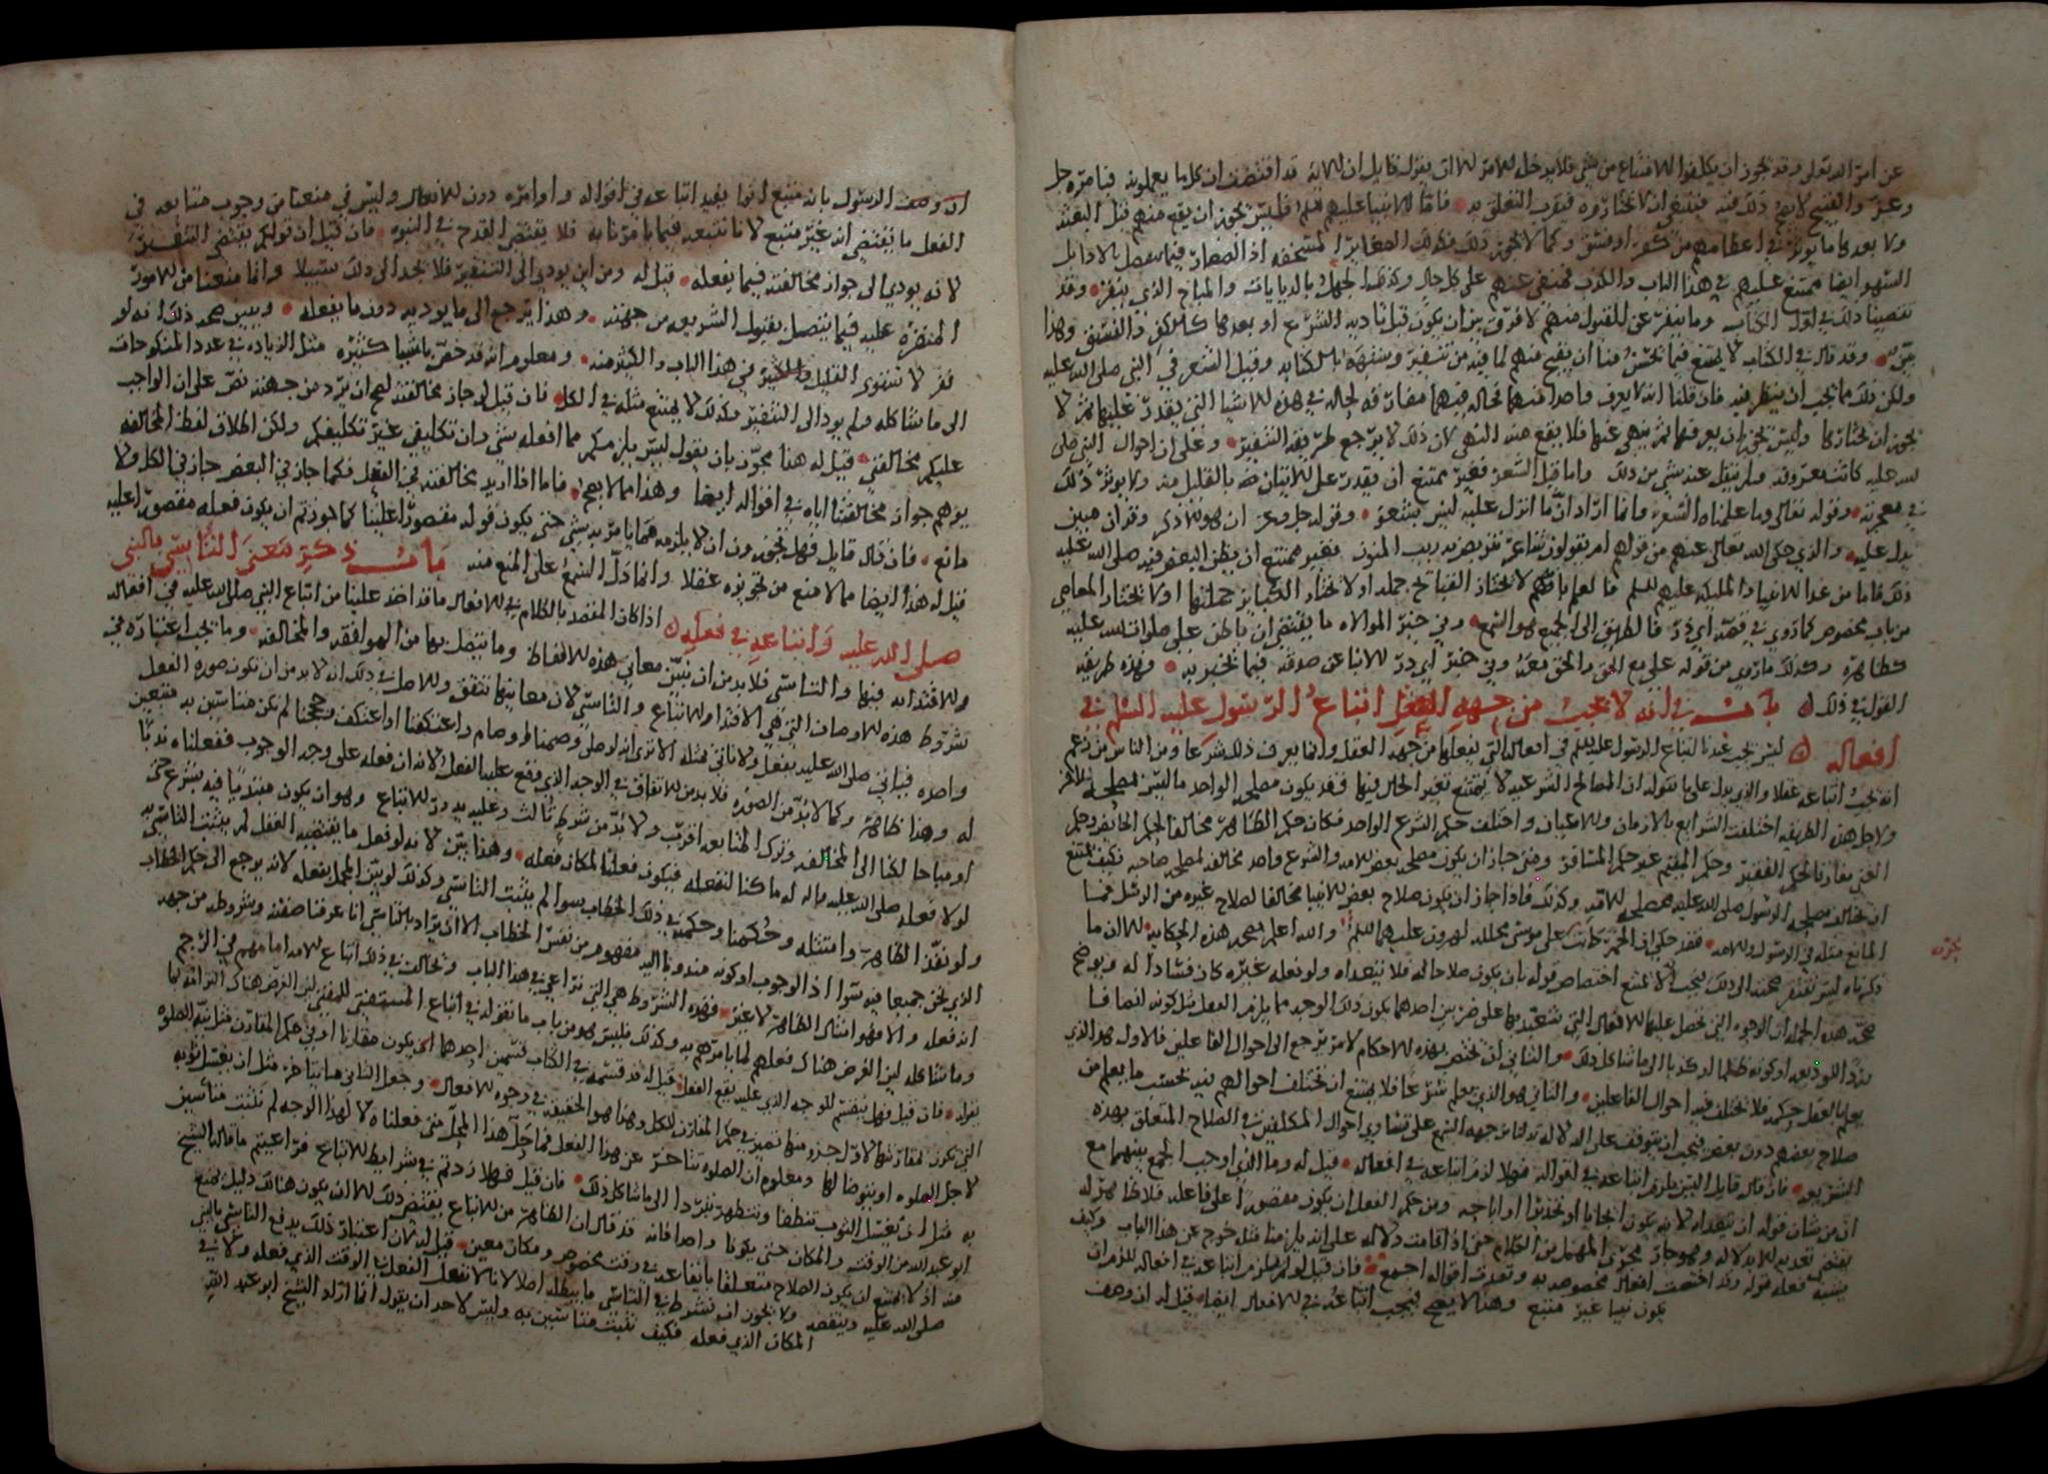 عن امر الله تعلى وقد يجوز ان يكلفوا الامتناع من شي فلا يدخل للامر الا ان يقول قايل ان الاية قد اقتضت ان كل ما يعملونه فبامره جل
وعز والقبيح لا يصح ذلك فيه فيقتضي ان لا يختاروه فيقرب التعلق به فاما الانبيا عليهم السلم فليس يجوز ان يقع منهم قبل البعثة
ولا بعدها ما يوثر في اعظامهم من كفر او فسق وكما لا يجوز ذلك فكذلك الصغاير المستخفه اذ الصغاير فيما يتصل بالاداء بل
السهو ايضا ممتنع عليهم في هذا الباب والكذب فمنفي عنهم على كل حال وكذلك الجهل بالديانات والمباح الذي ينفر وقد
تقصينا ذلك في اول الكتاب وما ينفر عن القبول منهم لا فرق بين ان يكون قبل تادية الشرع او بعدها كالكفر والفسق وهذا
بين وقد قال في الكتاب لا يمتنع فيما يحسن منا ان يقبح منهم لما فيه من تنفير وشبهة بالكتابة وقيل الشعر في النبي صلى الله عليه
ولكن ذلك مما يجب ان ينظر فيه فان قلنا انه لا يعرف واحدا منهما فحاله فيهما مفارقة لحاله في هذه الاشيا التي يقدر عليها ثم لا
يجوز ان يختارها وليس يجوز ان يعرفهما ثم ينهى عنها فلا يقع منه النهي لان ذلك لا يرجع طريقة التنفير وعلى ان احوال النبي صلى
الله عليه كانت معروفة ولم ينقل عنه شي من ذلك واما قيل الشعر فغير ممتنع ان يقدر على الاتيان منه بالقليل منه ولا يوثر ذلك
في معجزته وقوله تعالى وما علمناه الشعر وانما اراد ان ما انزل عليه ليس بشعر وقوله جل وعز ان هو الا ذكر وقران مبين
يدل عليه والذي حكى الله تعالى عنهم من قولهم ام يقولون شاعر نتربص به ريب المنون فغير ممتنع ان يظن البعض فيه صلى الله عليه
ذلك فاما من عدا الانبيا والمليكة عليهم السلم فالعلم بانهم لا يختار القبايح جملة او لا يختار الكباير جملتها او لا يختار المعاصي
من باب مخصوص كما روي في قصة ابي ذر فالطريق الى الجميع هو السمع وفي خبر الموالاه ما يقتضي ان باطن علي صلوات الله عليه
كظاهره وكذلك ما روي من قوله علي مع الحق والحق معه وفي خبر ابي ذر الانباء عن صدقه فيما يخبر به وهذه طريقة
القول في ذلك باب في انه لا يجب من جهة العقل اتباع الرسول عليه السلم في
افعاله ليس يجب عندنا اتباع الرسول عليه السلم في افعاله التي يفعلها من جهة العقل وانما يعرف ذلك شرعا ومن الناس من زعم
انه يجب اتباعه عقلا والذي يدل على ما نقوله ان المصالح الشرعية لا يمتنع تغير الحال فيها فقد يكون مصلحة الواحد ما ليس مصلحة للاخر
ولاجل هذه الطريقة اختلفت الشرايع بالازمان والاعيان واختلف حكم الشرع الواحد فكان حكم الطاهر مخالفا لحكم الحايض وحكم
الغني مفارقا لحكم الفقير وحكم المقيم غير حكم المسافر ومتى جاز ان يكون مصلحة بعض الامة والشرع واحد مخالفه لمصلحة صاحبه فكيف يمتنع
ان يخالف مصلحة الرسول صلى الله عليه مصلحة الامة وكذلك فاذا جاز ان يكون صلاح بعض الانبيا مخالفا لصلاح غيره من الرسل فما
المانع مثله في الرسول والامة فقد حكي ان الخمر كانت على موسى محللة لهرون عليهما السلم والله اعلم بصحة هذه الحكاية الا ان ما
ذكرناه ليس تفتقر صحته الى ذلك ليجب الا يمتنع اختصاص قوله بان يكون صلاحا له فلا يتعداه ولو فعله غيره كان فسادا له ويوضح
صحة هذه الجملة ان الوجوه التي تحصل عليها الافعال التي تعبد بها على ضربين احدهما يكون ذلك الوجه مما يلزم العقل مثل كونه انصافا
ورد الوديعة او كونه ظلما او كذبا الى ما شاكل ذلك والثاني ان يختص بهذه الاحكام لامر يرجع الى احوال الفاعلين فالاول هو الذي
يعلم بالعقل حكمه فلا يختلف فيه احوال الفاعلين والثاني هو الذي يعلم شرعا فلا يمتنع ان تختلف احوالهم فيه بحسب ما يعلم من
صلاح بعضهم دون بعض فيجب ان يتوقف على الدلالة تدلنا من جهة السمع على تساوي احوال المكلفين في الصلاح المتعلق بهذه
الشريعة فان قال قايل اليس يلزم اتباعه في اقواله فهلا لزم اتباعه في افعاله قيل له وما الذي اوجب الجمع بينهما مع
ان من شان قوله ان يتعداه لانه يكون ايجابا او تحذيرا او اباحه ومن حكم الفعل ان يكون مقصورا على فاعله فلا ظاهر له
يقتضي تعديه الا بدلالة وهو جار مجرى المهمل من الكلام حتى اذا قامت دلالة على انه يلزمنا مثله خرج عن هذا الباب وكيف
يشبه فعله قوله وقد اختصت افعال مخصوصه به وتعدت اقواله اجمع فان قيل لو لم يلزم اتباعه في افعاله للزم ان
يكون نبيا غير متبع وهذا لا يصح فيجب اتباعه في الافعال ايضا قيل له ان وصف
يجوز
ان وصف الرسول بانه متبع انما يفيد اتباعه في اقواله واوامره دون الافعال وليس في منعنا من وجوب متابعته في
الفعل ما يقتضي انه غير متبع لانا نتبعه فيما يامرنا به فلا يقتضي القدح في النبوه فان قيل ان قولكم يقتضي التنفير
لانه يودي الى جواز مخالفته فيما يفعله قيل له ومن اين يودي الى التنفير فلا يجد الى ذلك سبيلا وانما منعنا من الامور
المنفرة عليه فيما يتصل بقبول الشريعه من جهته وهذا يرجع الى ما يوديه دون ما يفعله ويبين صحة ذلك انه لو
نفر لاستوى القليل والكثير في هذا الباب والكثير منه ومعلوم انه قد خص باشيا كثيره مثل الزياده في عدد المنكوحات
الى ما شاكله ولم يود الى التنفير وكذلك لا يمتنع مثله في الكل فان قيل لو جاز مخالفته لصح ان يرد من جهته نص على ان الواجب
عليكم مخالفتي قيل له هذا مجوز بان يقول ليس يلزمكم مما افعله شي وان تكليفي غير تكليفكم ولكن اطلاق لفظ المخالفه
يوهم جواز مخالفتنا اياه في اقواله ايضا وهذا مما لا يصح فاما اذا اريد مخالفته في الفعل فكما جاز في البعض جاز في الكل ولا
مانع فان قال قايل فهل يجوزون ان لا يلزمه مما يامر به شي حتى يكون قوله مقصورا علينا كما جوزتم ان يكون فعله مقصورا عليه
قيل له هذا ايضا مما لا منع من تجويزه عقلا وانما دل السمع على المنع منه باب في ذكر معنى التاسي بالنبي
صلى الله عليه واتباعه في فعله اذا كان المقصد بالكلام في الافعال ما قد اخذ علينا من اتباع النبي صلى الله عليه في افعاله
والاقتدا به فيها والتاسي فلا بد من ان نبين معاني هذه الالفاظ وما يتصل بها من الموافقة والمخالفه وما يجب اعتباره في
شروط هذه الاوصاف التي هي الاقتدا والاتباع والتاسي لان معانيها تتفق والاصل في ذلك انه لا بد من ان تكون صورة الفعل
واحده فياتي صلى الله عليه بفعل ولا ناتي مثله الا ترى انه لو صلى وصمنا او صام واعتكفنا او اعتكف وحججنا لم نكن متاسين به متبعين
له وهذا ظاهر وكما لا بد من الصورة فلا بد من الاتفاق في الوجه الذي وقع عليه الفعل لانه ان فعله على وجه الوجوب ففعلناه ندبا
او مباحا لكنا الى المخالفه وترك المتابعه اقرب ولا بد من شرط ثالث وعليه يدور الاتباع وهو ان يكون مبتديا فيه بشرع حتى
لولا فعله صلى الله عليه واله له ما كنا لنفعله فيكون فعلنا لمكان فعله وهذا بين لانه لو فعل ما يقتضيه العقل لم يثبت التاسي به
ولو نفذ الظاهر وامتثله وحكمنا وحكمه في ذلك الخطاب سوا لم يثبت التاسي وكذلك لو بين المجمل بفعله لانه يرجع الى حكم الخطاب
الذي نحن جميعا فيه سوا اذ الوجوب او كونه مندوبا اليه مفهوم من نفس الخطاب الا ان يراد بالتاسي انا عرفنا صفته وشروطه من جهة
انه فعله والا فهو امتثال الظاهر لا غير فهذه الشروط هي التي نراعي في هذا الباب ويخالف في ذلك اتباع الامة امامهم في الرجم
وما شاكله لان الغرض هناك فعلهم لما يامرهم به وكذلك فليس هو من باب ما نقوله في اتباع المستفتي للمفتي لان الغرض هناك التزامه لما
يقوله فان قيل فهل ينقسم الوجه الذي عليه يقع الفعل قيل له قد قسمه في الكتاب قسمين احدهما ان يكون مقارنا او في حكم المقارن مثل نية الصلوه
التي يكون لمقارنتها لاول جزو منها تصير في حكم المقارن للكل وهذا هو الحقيقة في وجوه الافعال وجعل الثاني ما يتاخر مثل ان يغسل ثوبه
لاجل الصلوه او يتوضا لها ومعلوم ان الصلوه تتاخر عن هذا الفعل فما حل هذا المحل متى فعلناه لا لهذا الوجه لم تثبت متاسين
به مثل ان نغسل الثوب تنظفا ونتطهر تبردا الى ما شاكل ذلك فان قيل فهلا زدتم في شرايط الاتباع مراعيتم ما قاله الشيخ
ابو عبد الله من الوقت والمكان حتى يكونا واحدا فانه قد قال ان الظاهر من الاتباع يقتضي ذلك الا ان يكون هناك دليل يمنع
منه اذ لا يمتنع ان يكون الصلاح متعلقا بايقاعه في وقت مخصوص ومكان معين قيل له ان اعتبار ذلك يدفع التاسي بالنبي
صلى الله عليه وينقضه ولا يجوز ان نشرط في التاسي ما يبطله اصلا لانا لا نفعل الفعل في الوقت الذي فعله ولا في
المكان الذي فعله فكيف نثبت متاسين به وليس لاحد ان يقول انما اراد الشيخ ابو عبد الله